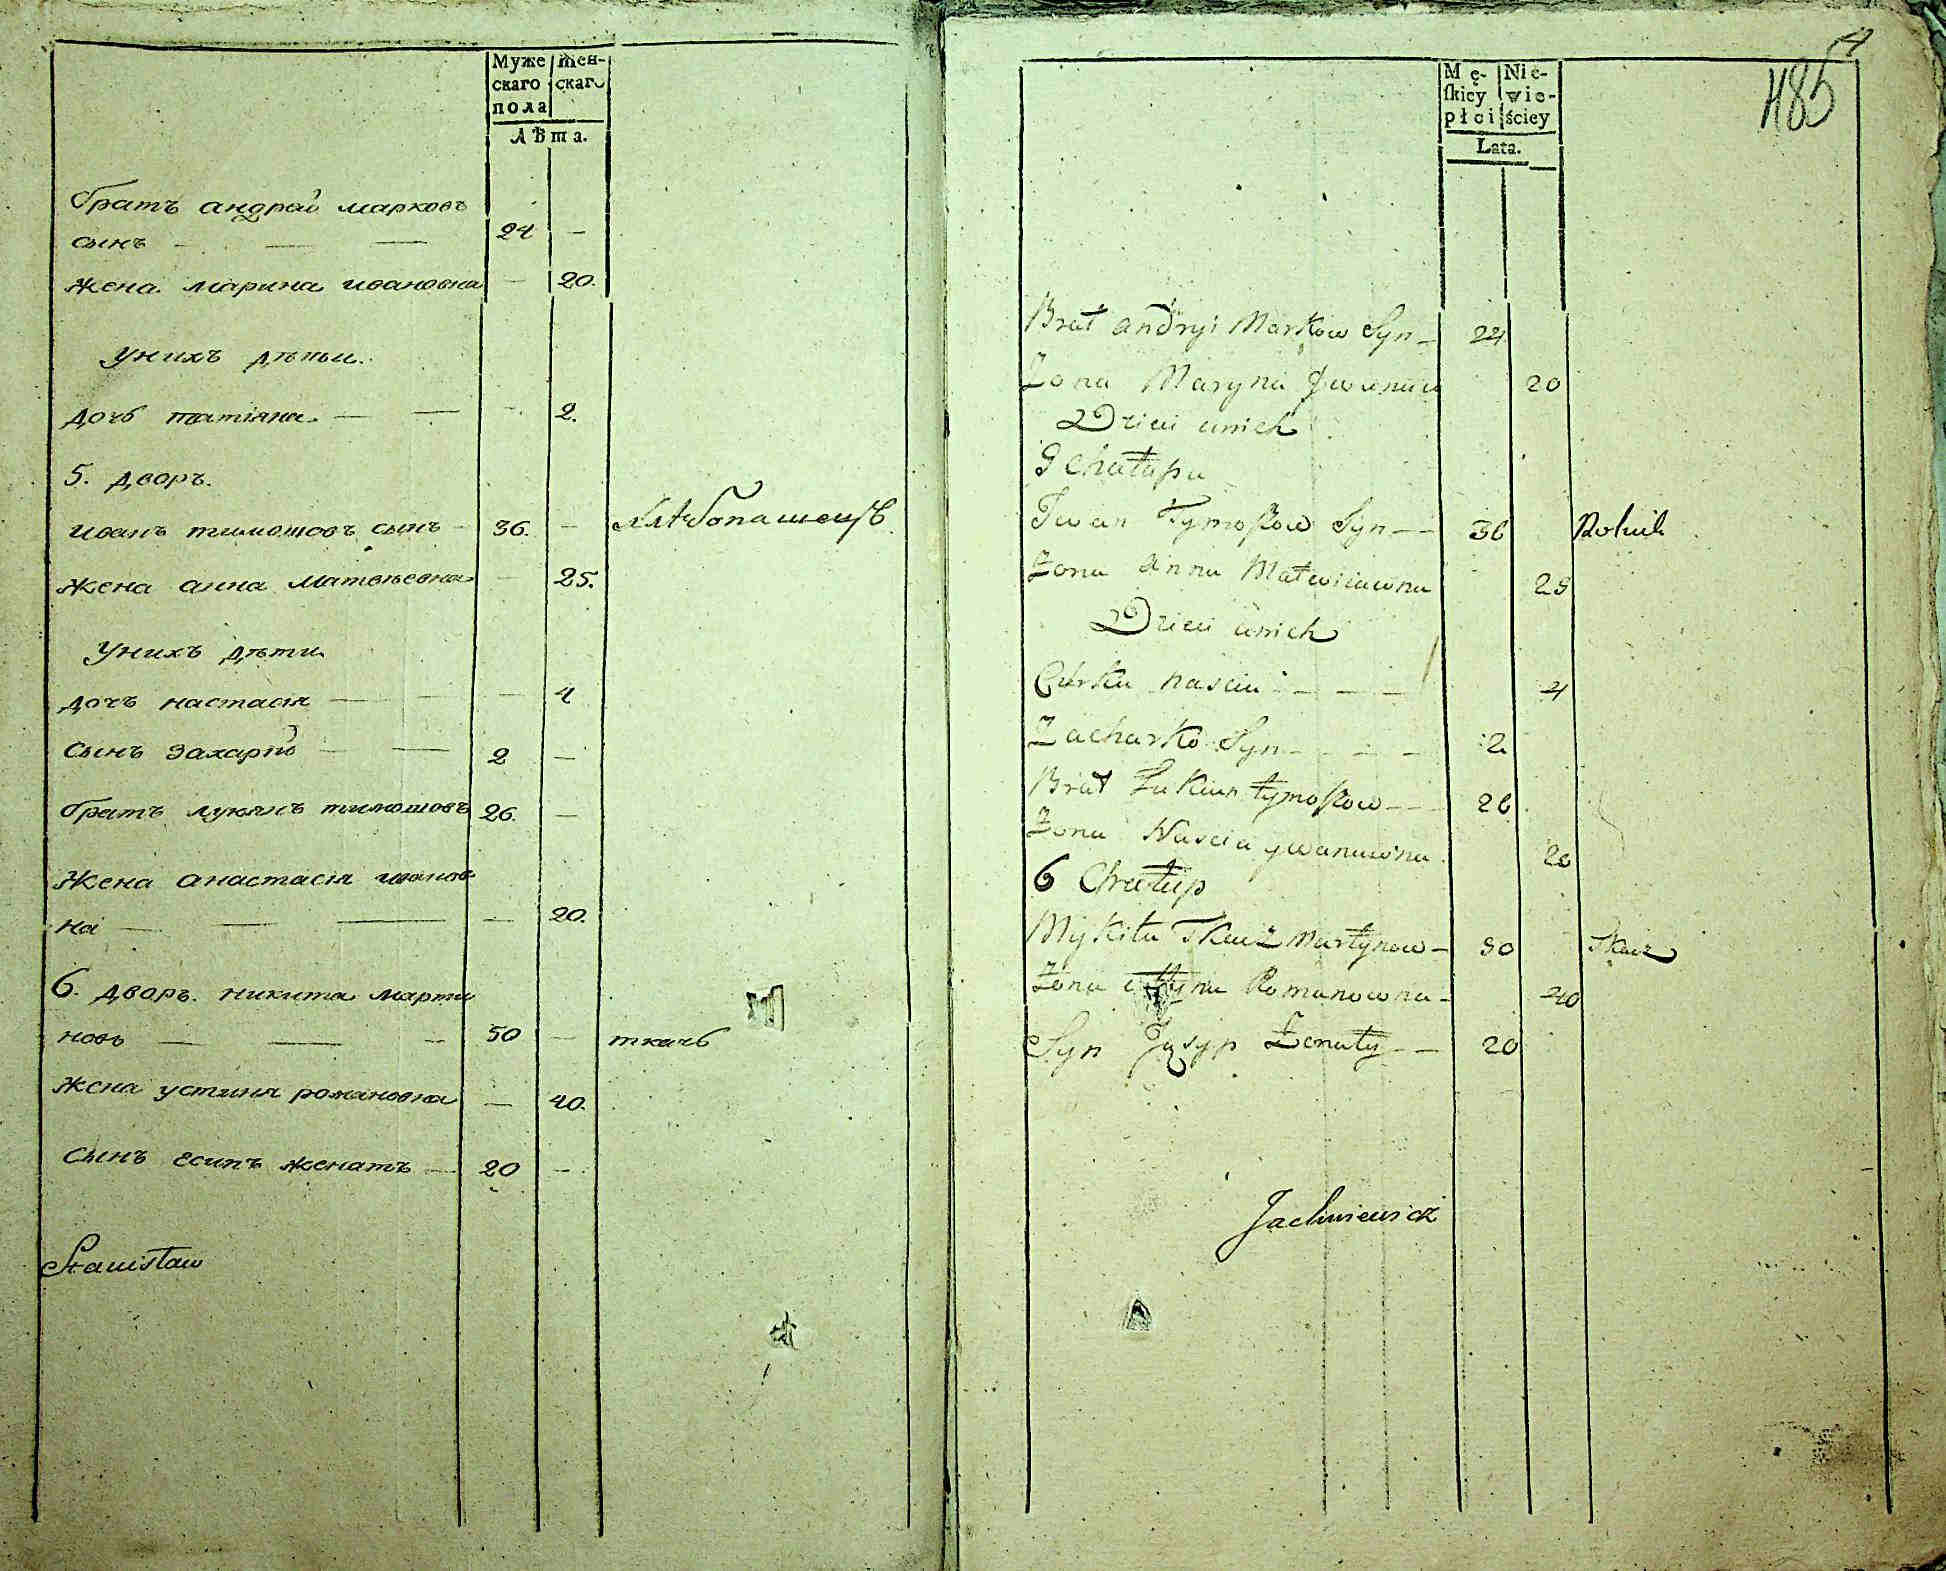 Муже Жен-
скаго скаго
пола
Лѣта.
братъ андрей марковъ
сынъ — — — 24 —
жена марина ивановна — 20.
уних​ъ дѣти.
дочь татіяна — — — 2.
5. дворъ.
иванъ тимошовъ сынъ — 36. — хлѣбопашецъ
жена анна матвѣевна — 25.
унихъ дѣти
дочъ настасія — — — 4
сынъ захарій — — 2 —
братъ лукянъ тимошовъ 26. —
жена анастасія иванов
на — — — — 20.
6. дворъ. никита марти
новъ — — — 50 — ткачь
жена устиня романовна — 40.
сынъ есипъ женатъ — 20 —
Stanisław
4
485
Mę- Nie-
skiey wie-
płci ściey
Lata.
Brat andryi Markow Syn — 24
Zona Maryna 20
Dzieci unich
Iwan Tymoszow Syn — 36 Rolnik
Zona Anna Matwiiowna 25
Dzieci unich
Curka nascia — — — 4
Zacharko Syn — — — 2
Brat Łukian tymoszow — 26
Zona Nascia ywanowna 20
6 Chałup
Mykita Tkacz Martynow — 50 Tkacz
Zona Romanowna — 40
Syn Jusyp Zenaty — 20
Jachniewicz